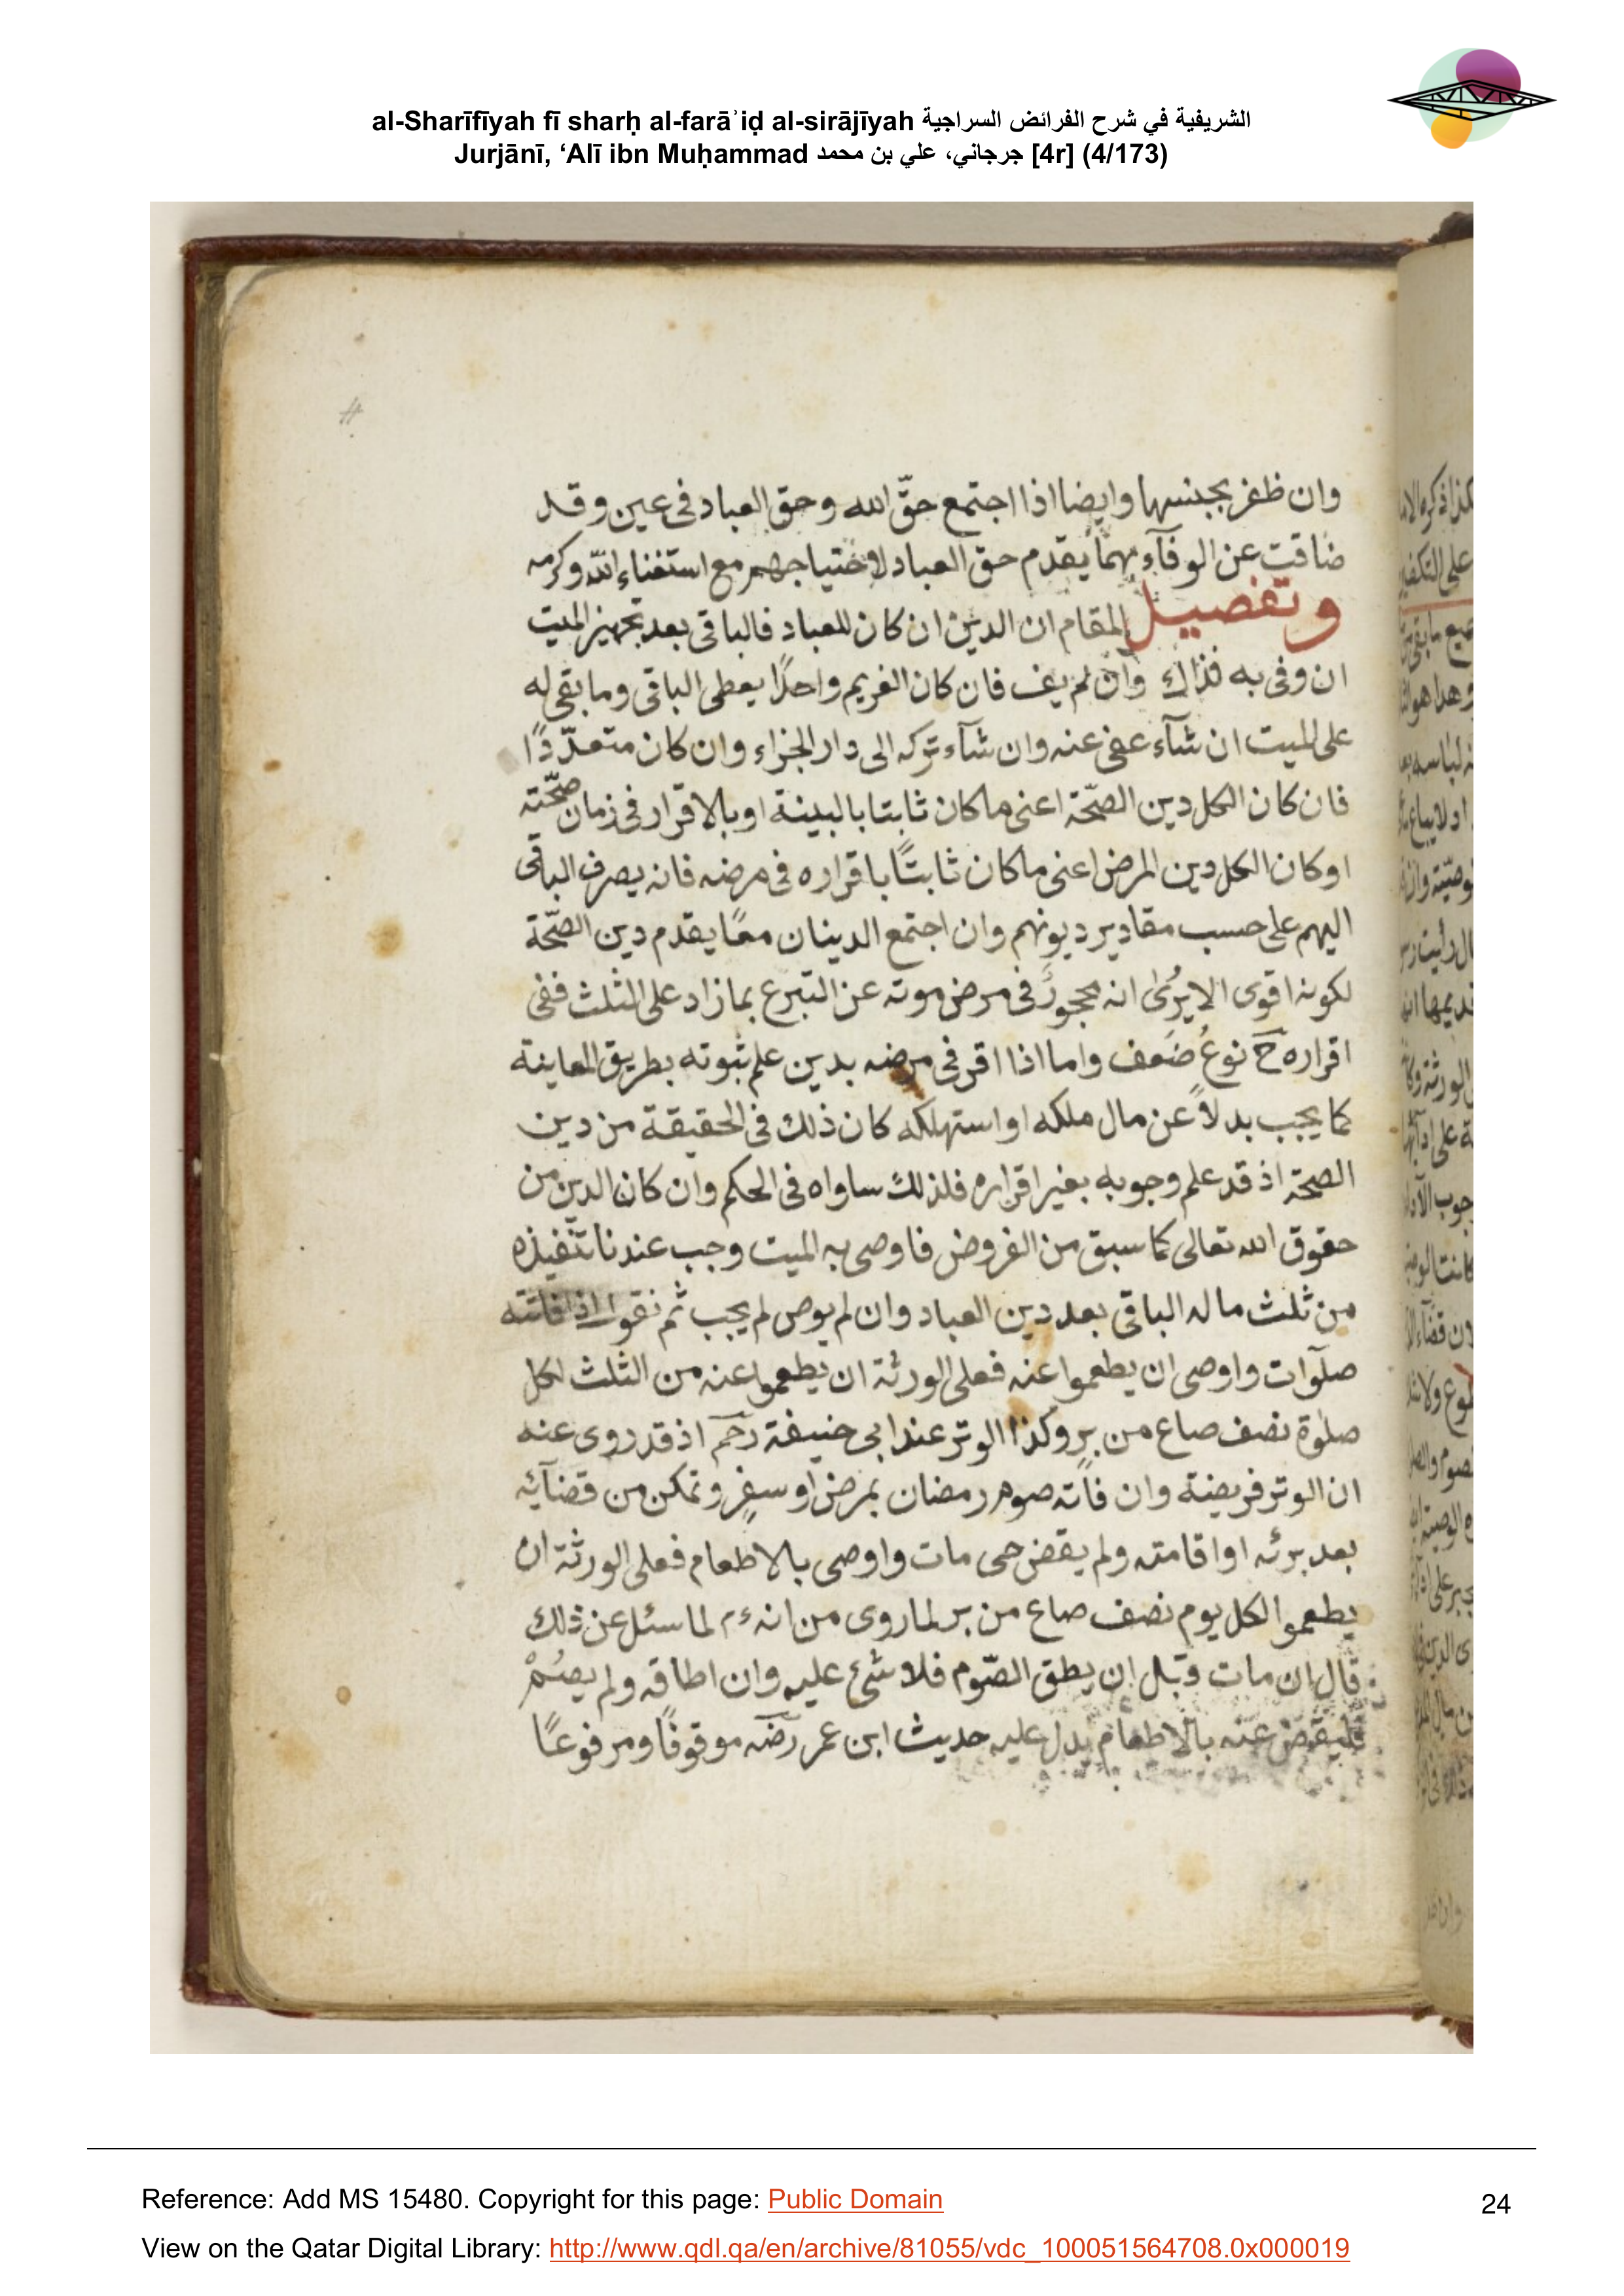 al-Sharīfīyah fī sharḥ al-farāʾiḍ al-sirājīyah الشريفية في شرح الفرائض السراجية
Jurjānī, ‘Alī ibn Muḥammad جرجاني، علي بن محمد [4r] (4/173)
وان ظفر بجنسها وايضا اذا اجتمع حقّ الله وحق العباد فى عين وقد
ضاقت عن الوفآء بهما يقدم حق العباد لاحتياجهم مع استغناء الله وكرمه
وتفصيل المقام ان الدين ان كان للعباد فالباقى بعد تجهيز الميت
ان وفى به فذاك وان لم يف فان كان الغريم واحدًا يعطى الباقى وما بقى له
على الميت ان شآء عفى عنه وان شآء تركه الى دار الجزاء وان كان متعدّدًا
فان كان الكل دين الصّحّة اعنى ما كان ثابتا بالبينة او بالاقرار فى زمان صحّته
او كان الكل دين المرض اعنى ما كان ثابتًا باقراره فى مرضه فانه يصرف الباقى
اليهم على حسب مقادير ديونهم وان اجتمع الدينان معًا يقدم دين الصّحّة
لكونه اقوى الا يرى انه محجور فى مرض موته عن التبرع بما زاد على الثلث ففى
اقراره ح نوعُ ضعف واما اذا اقر فى مرضه بدين علم ثبوته بطريق المعاينة
كما يجب بدلاً عن مال ملكه او استهلكه كان ذلك فى الحقيقة من دين
الصحة اذ قد علم وجوبه بغير اقراره فلذلك ساواه فى الحكم وان كان الدين من
حقوق الله تعالى كما سبق من الفروض فاوصى به الميت وجب عندنا تنفيذه
من ثلث ماله الباقى بعد دين العباد وان لم يوص لم يجب ثم نقول اذا فاتته
صلوات واوصى ان يطعموا عنه فعلى الورثة ان يطعموا عنه من الثلث لكل
صلوة نصف صاع من بر وكذا الوتر عند ابى حنيفة رحم اذ قد روى عنه
ان الوتر فريضة وان فاته صوم رمضان بمرض او سفر وتمكن من قضآئه
بعد برئه او اقامته ولم يقض حى مات واوصى بالاطعام فعلى الورثة ان
يطعموا لكل يوم نصف صاع من بر لما روى من انه ءم لما سئل عن ذلك
قال ان مات قبل ان يطق الصّوم فلا شئ عليه وان اطاقه ولم يصُمْ
فليقض عنه بالاطعام يدل عليه حديث ابن عمر رضه موقوفًا ومرفوعًا
Reference: Add MS 15480. Copyright for this page: Public Domain
24
View on the Qatar Digital Library: http://www.qdl.qa/en/archive/81055/vdc_100051564708.0x000019